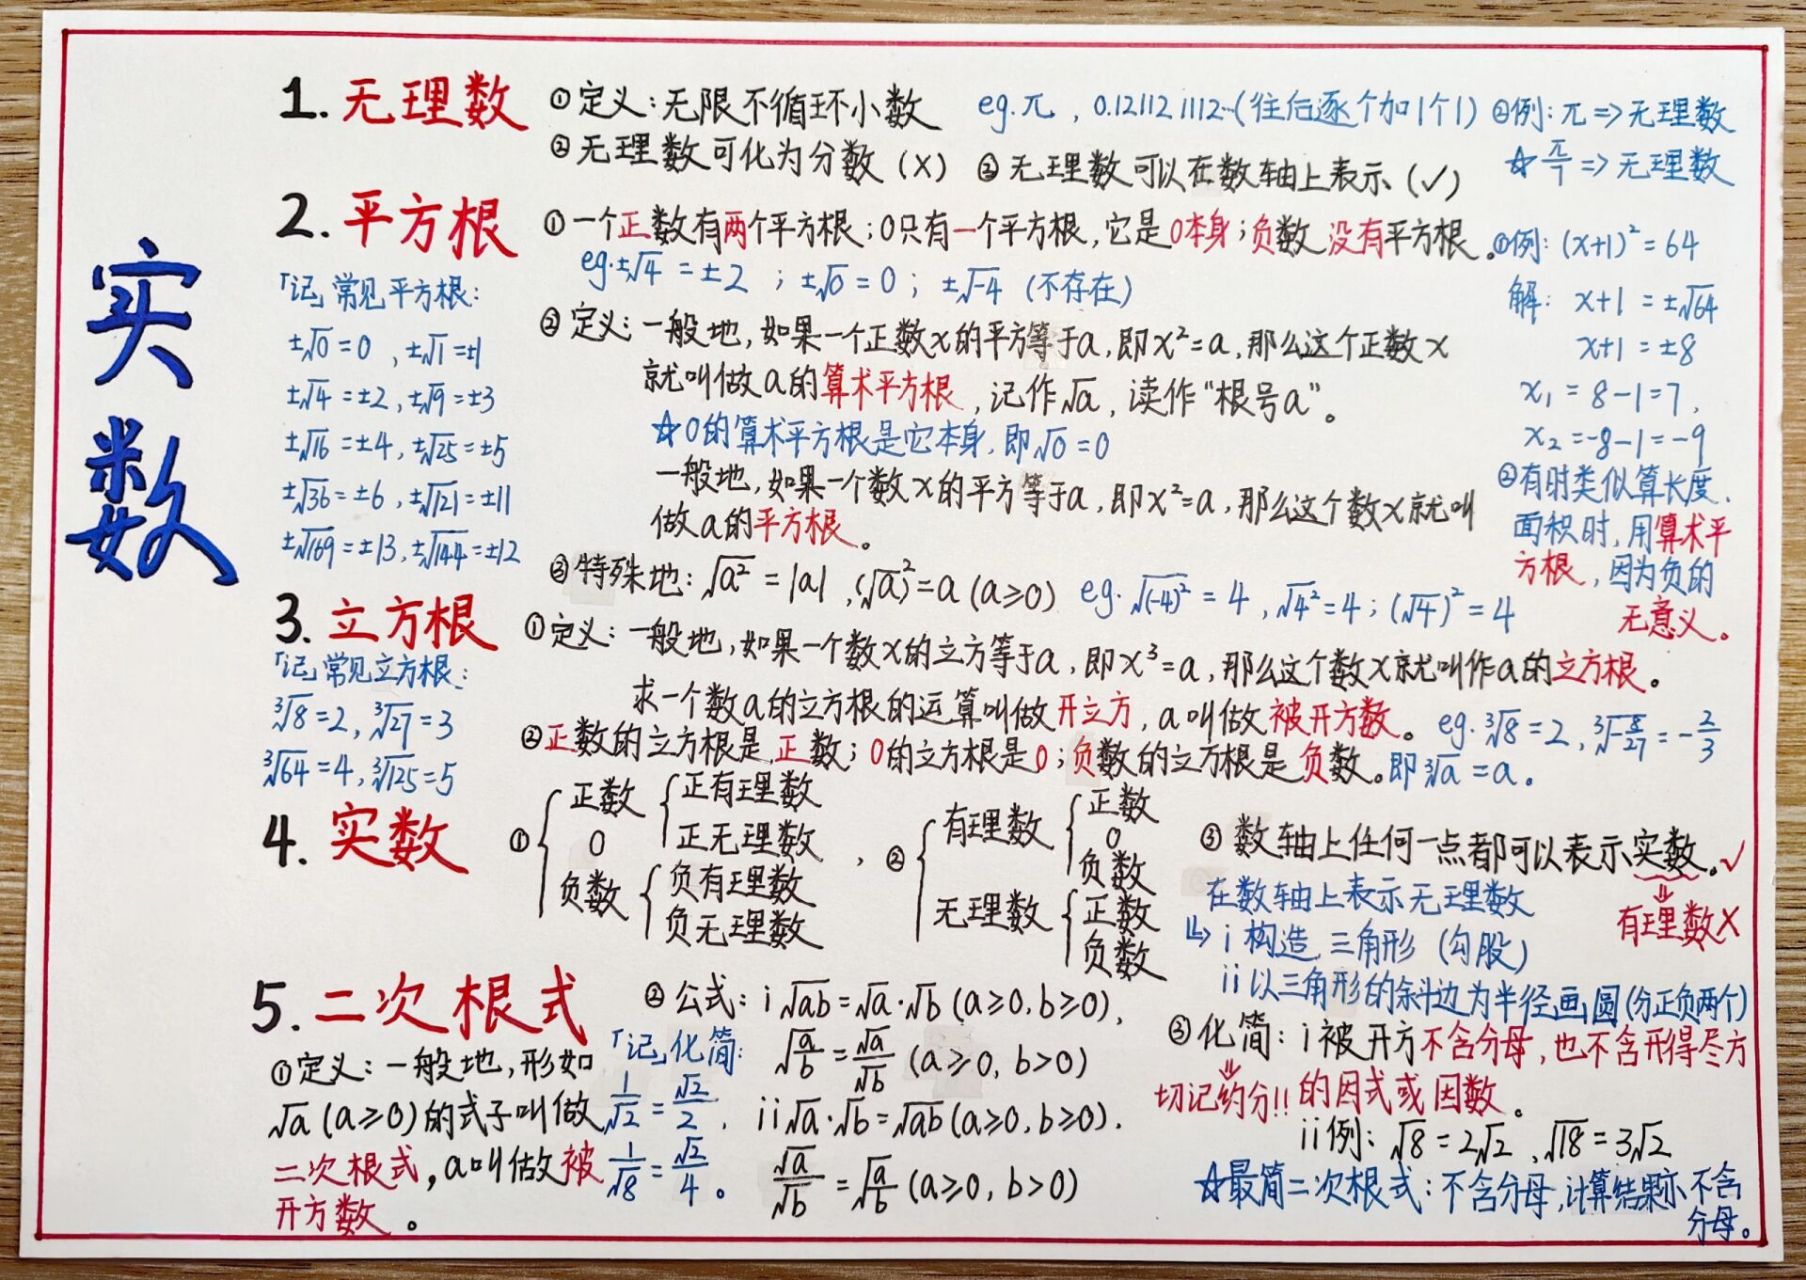 实数
1. 无理数
①定义：无限不循环小数 eg.π，0.121121112…(往后逐个加1个1)
②无理数可化为分数（×） ③无理数可以在数轴上表示（✓）
②例：π⇒无理数
☆π/1⇒无理数
2. 平方根
「记」常见平方根：
±√0=0，±√1=±1
±√4=±2，±√9=±3
±√16=±4，±√25=±5
±√36=±6，±√121=±11
±√169=±13，±√144=±12
①一个正数有两个平方根；0只有一个平方根，它是0本身；负数没有平方根。
eg.±√4=±2；±√0=0；±√-4（不存在）
②定义：一般地，如果一个正数x的平方等于a，即x²=a，那么这个正数x
就叫做a的算术平方根，记作√a，读作“根号a”。
☆0的算术平方根是它本身，即√0=0
一般地，如果一个数x的平方等于a，即x²=a，那么这个数x就叫
做a的平方根。
③特殊地：√a²=|a|，(√a)²=a(a≥0) eg.√(-4)²=4，√4²=4；(√4)²=4
①例：(x+1)²=64
解：x+1=±√64
x+1=±8
x₁=8-1=7，
x₂=-8-1=-9
②有时类似算长度、
面积时，用算术平
方根，因为负的
无意义。
3. 立方根
「记」常见立方根：
³√8=2，³√27=3
³√64=4，³√125=5
①定义：一般地，如果一个数x的立方等于a，即x³=a，那么这个数x就叫作a的立方根。
求一个数a的立方根的运算叫做开立方，a叫做被开方数。eg.³√8=2，³√-8/27=-2/3
②正数的立方根是正数；0的立方根是0；负数的立方根是负数。即³√a=a。
4. 实数
① 正数 正有理数
正无理数
0
负数 负有理数
负无理数，
② 有理数 正数
0
负数
无理数 正数
负数
③数轴上任何一点都可以表示实数。✓
⇓
有理数×
在数轴上表示无理数
↳ i构造三角形（勾股）
ii以三角形的斜边为半径画圆(分正负两个)
5. 二次根式
①定义：一般地，形如
√a(a≥0)的式子叫做
二次根式，a叫做被
开方数。
「记」化简：
1/√2=√2/2，
1/√8=√2/4。
②公式：i √ab=√a·√b(a≥0,b≥0)，
√a/b=√a/√b(a≥0,b>0)
ii √a·√b=√ab(a≥0,b≥0).
√a/√b=√a/b(a≥0,b>0)
③化简：i被开方不含分母，也不含开得尽方
⇓
切记约分!!的因式或因数。
ii例：√8=2√2，√18=3√2
☆最简二次根式：不含分母，计算结果亦不含
分母。